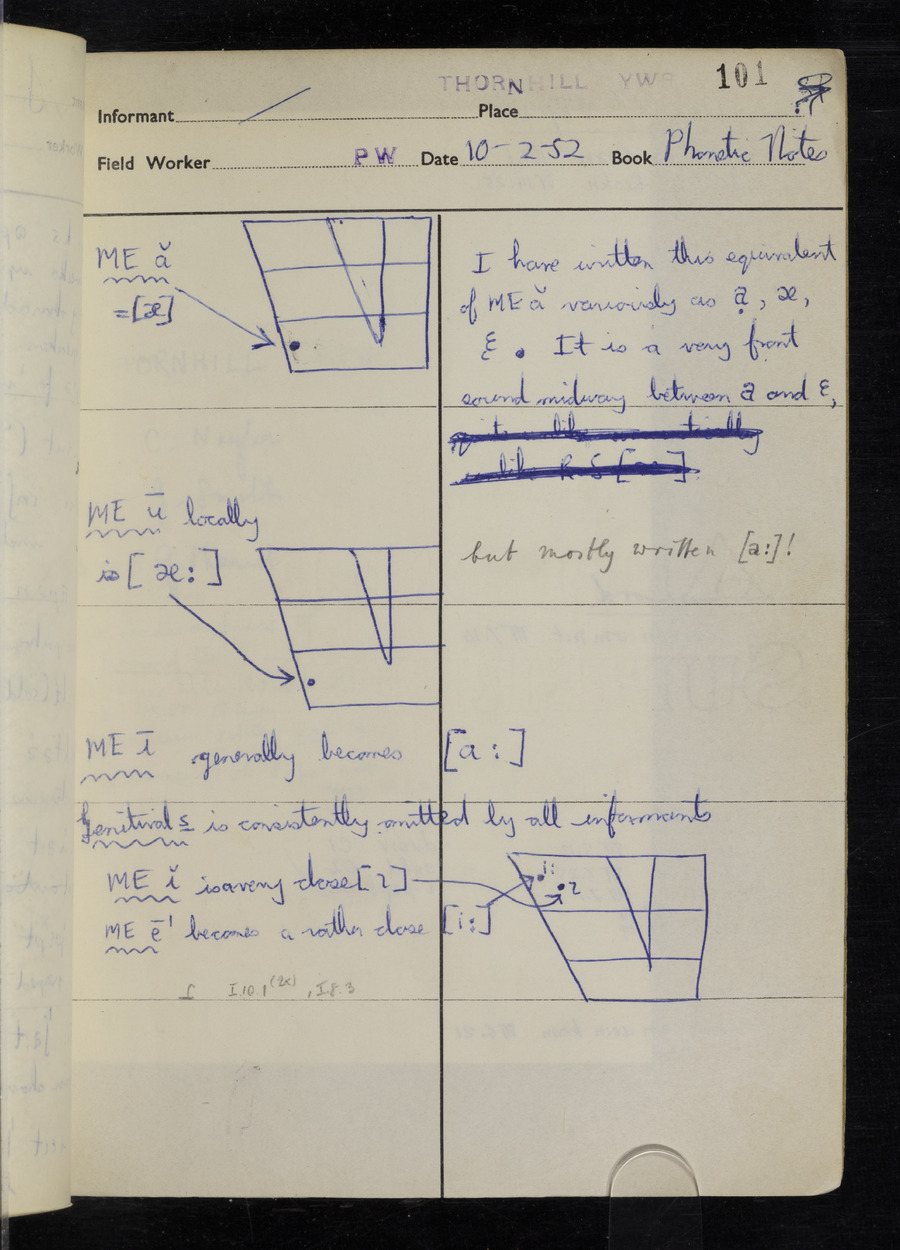 THORNHILL YWR 101
Informant Place
Field Worker PW Date 10-2-52 Book Phonetic Notes
ME ă
=[æ]
I have written this equivalent
of ME ă variously as a̝, æ,
ɛ. It is a very front
sound midway between a and ɛ,
ME ū locally
is [æ:]
but mostly written [a:]!
ME ī generally becomes [a:]
Genitival s is consistently omitted by all informants
i:
ɩ
ME ĭ is a very close [ɩ]
ME ē¹ becomes a rather close [i:]
I.10.1 (2x), I.8.3